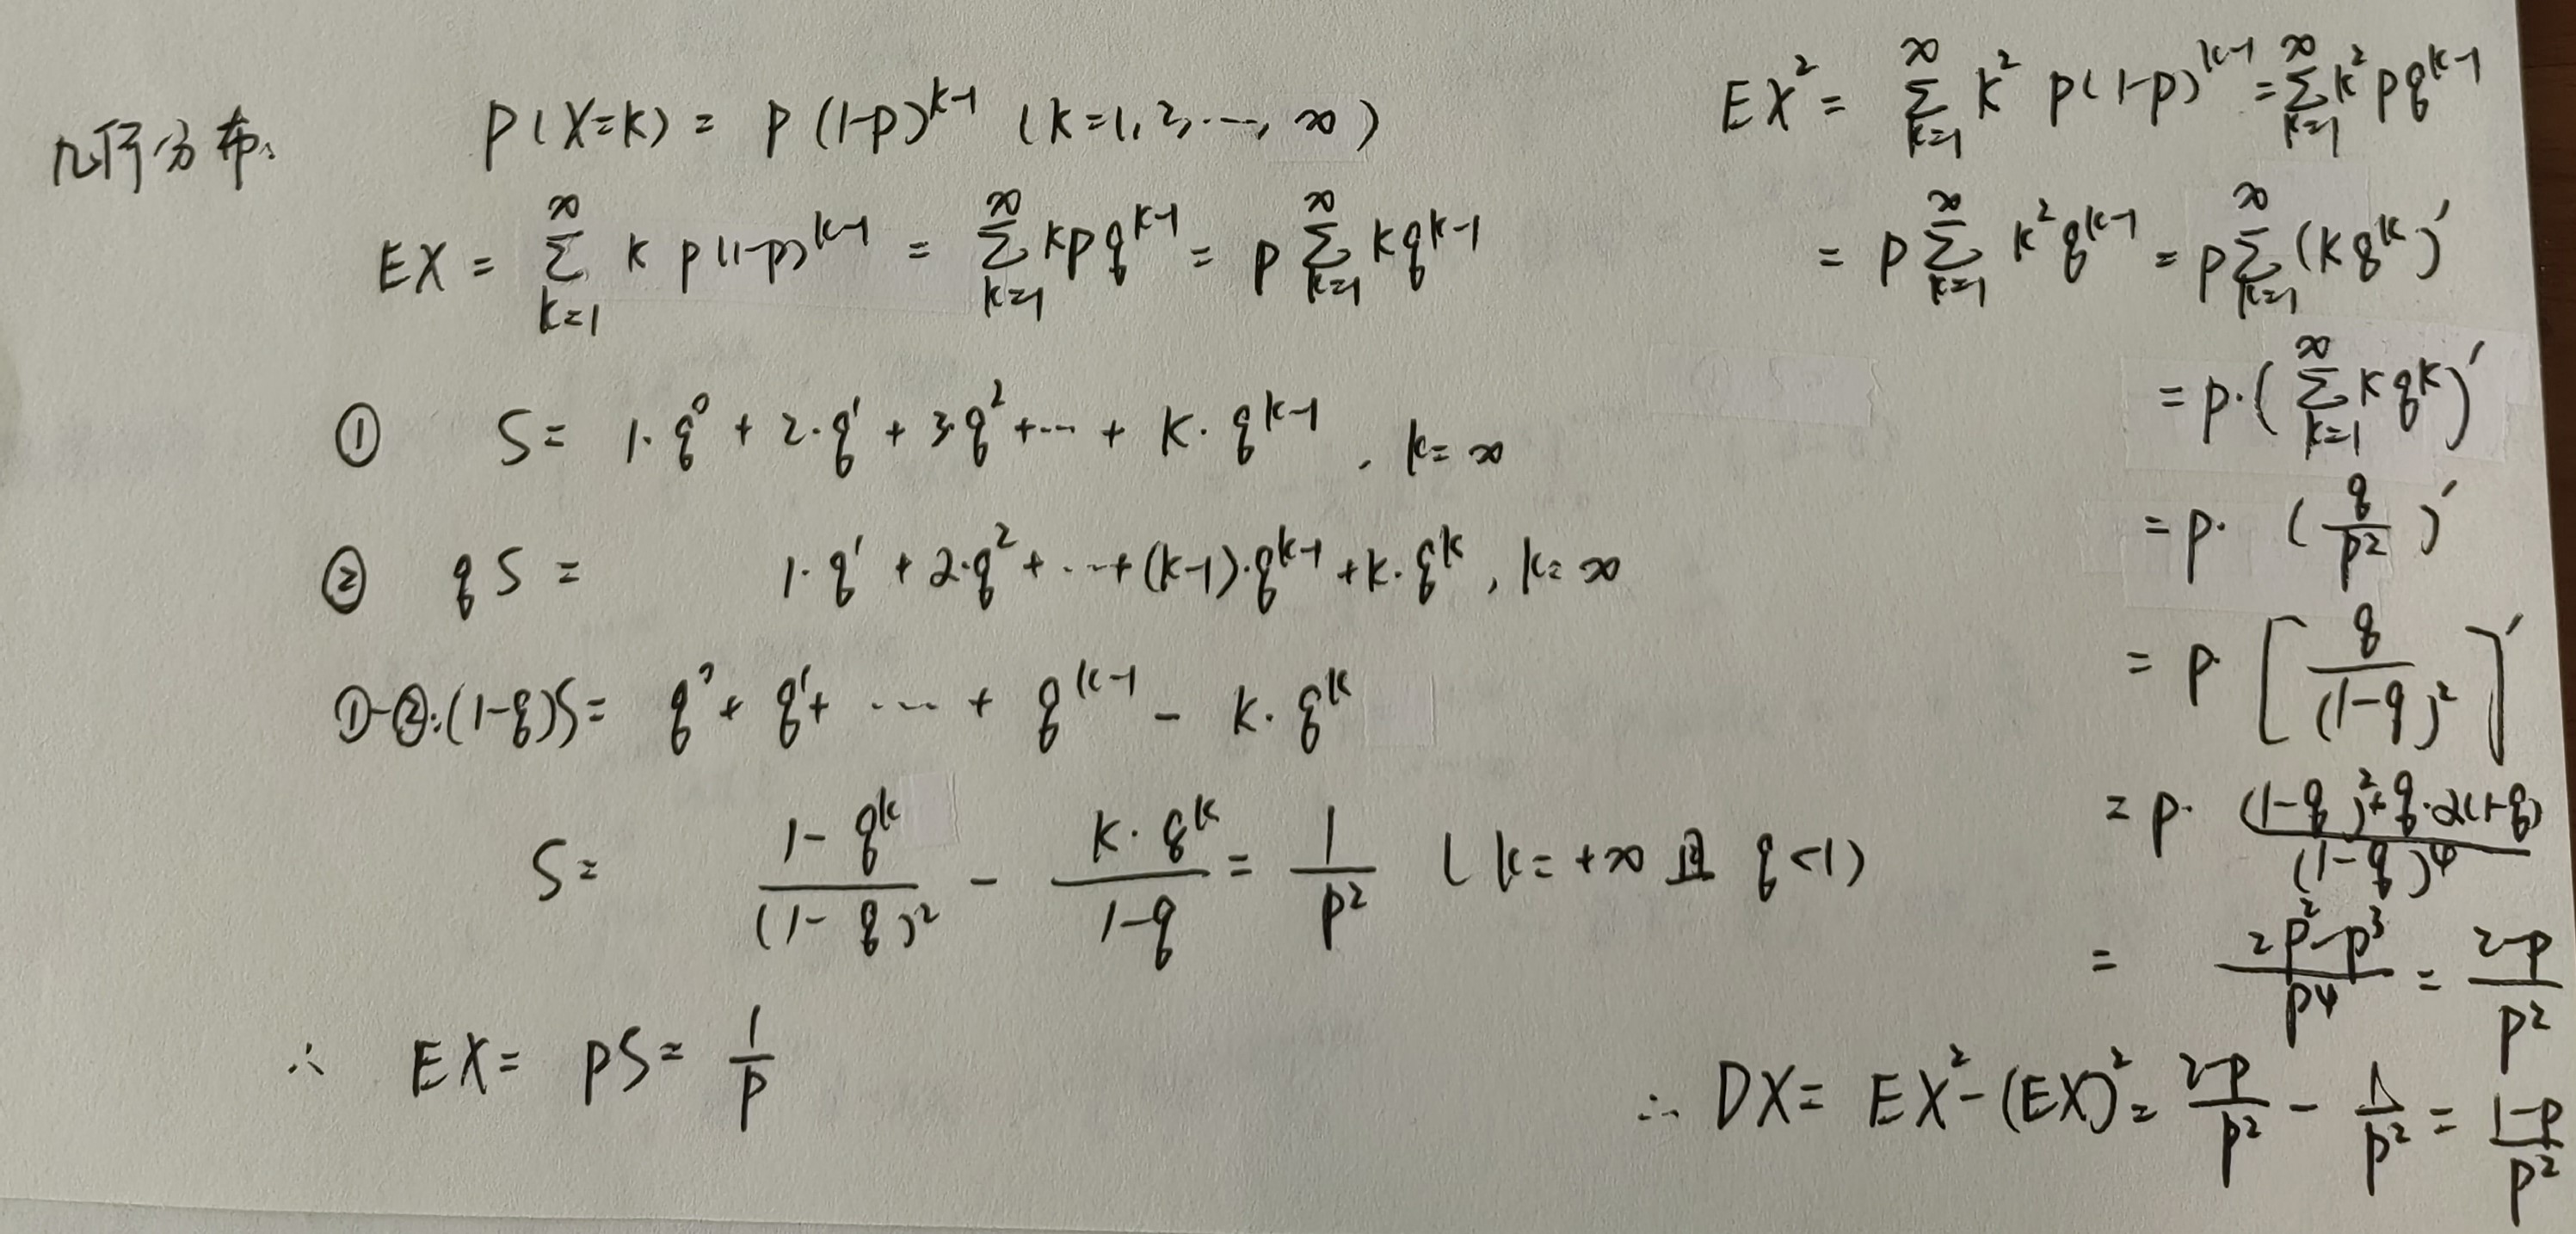 几何分布、 P(X=k) = p(1-p)^{k-1} (k=1,2,…,∞)
EX = \sum_{k=1}^{∞} k p(1-p)^{k-1} = \sum_{k=1}^{∞} k p q^{k-1} = p \sum_{k=1}^{∞} k q^{k-1}
① S = 1·q^0 + 2·q^1 + 3·q^2 + … + k·q^{k-1}, k=∞
② qS = 1·q^1 + 2·q^2 + … + (k-1)·q^{k-1} + k·q^k, k=∞
①-②: (1-q)S = q^0 + q^1 + … + q^{k-1} - k·q^k
S = \frac{1-q^k}{(1-q)^2} - \frac{k·q^k}{1-q} = \frac{1}{p^2} (k=+∞ 且 q<1)
∴ EX = pS = \frac{1}{p}
EX^2 = \sum_{k=1}^{∞} k^2 p(1-p)^{k-1} = \sum_{k=1}^{∞} k^2 p q^{k-1}
= p \sum_{k=1}^{∞} k^2 q^{k-1} = p \sum_{k=1}^{∞} (k q^k)'
= p·(\sum_{k=1}^{∞} k q^k)'
= p·(\frac{q}{p^2})'
= p·[\frac{q}{(1-q)^2}]'
= p·\frac{(1-q)^2+q·2(1-q)}{(1-q)^4}
= \frac{2p^2-p^3}{p^4} = \frac{2-p}{p^2}
∴ DX = EX^2-(EX)^2 = \frac{2-p}{p^2} - \frac{1}{p^2} = \frac{1-p}{p^2}